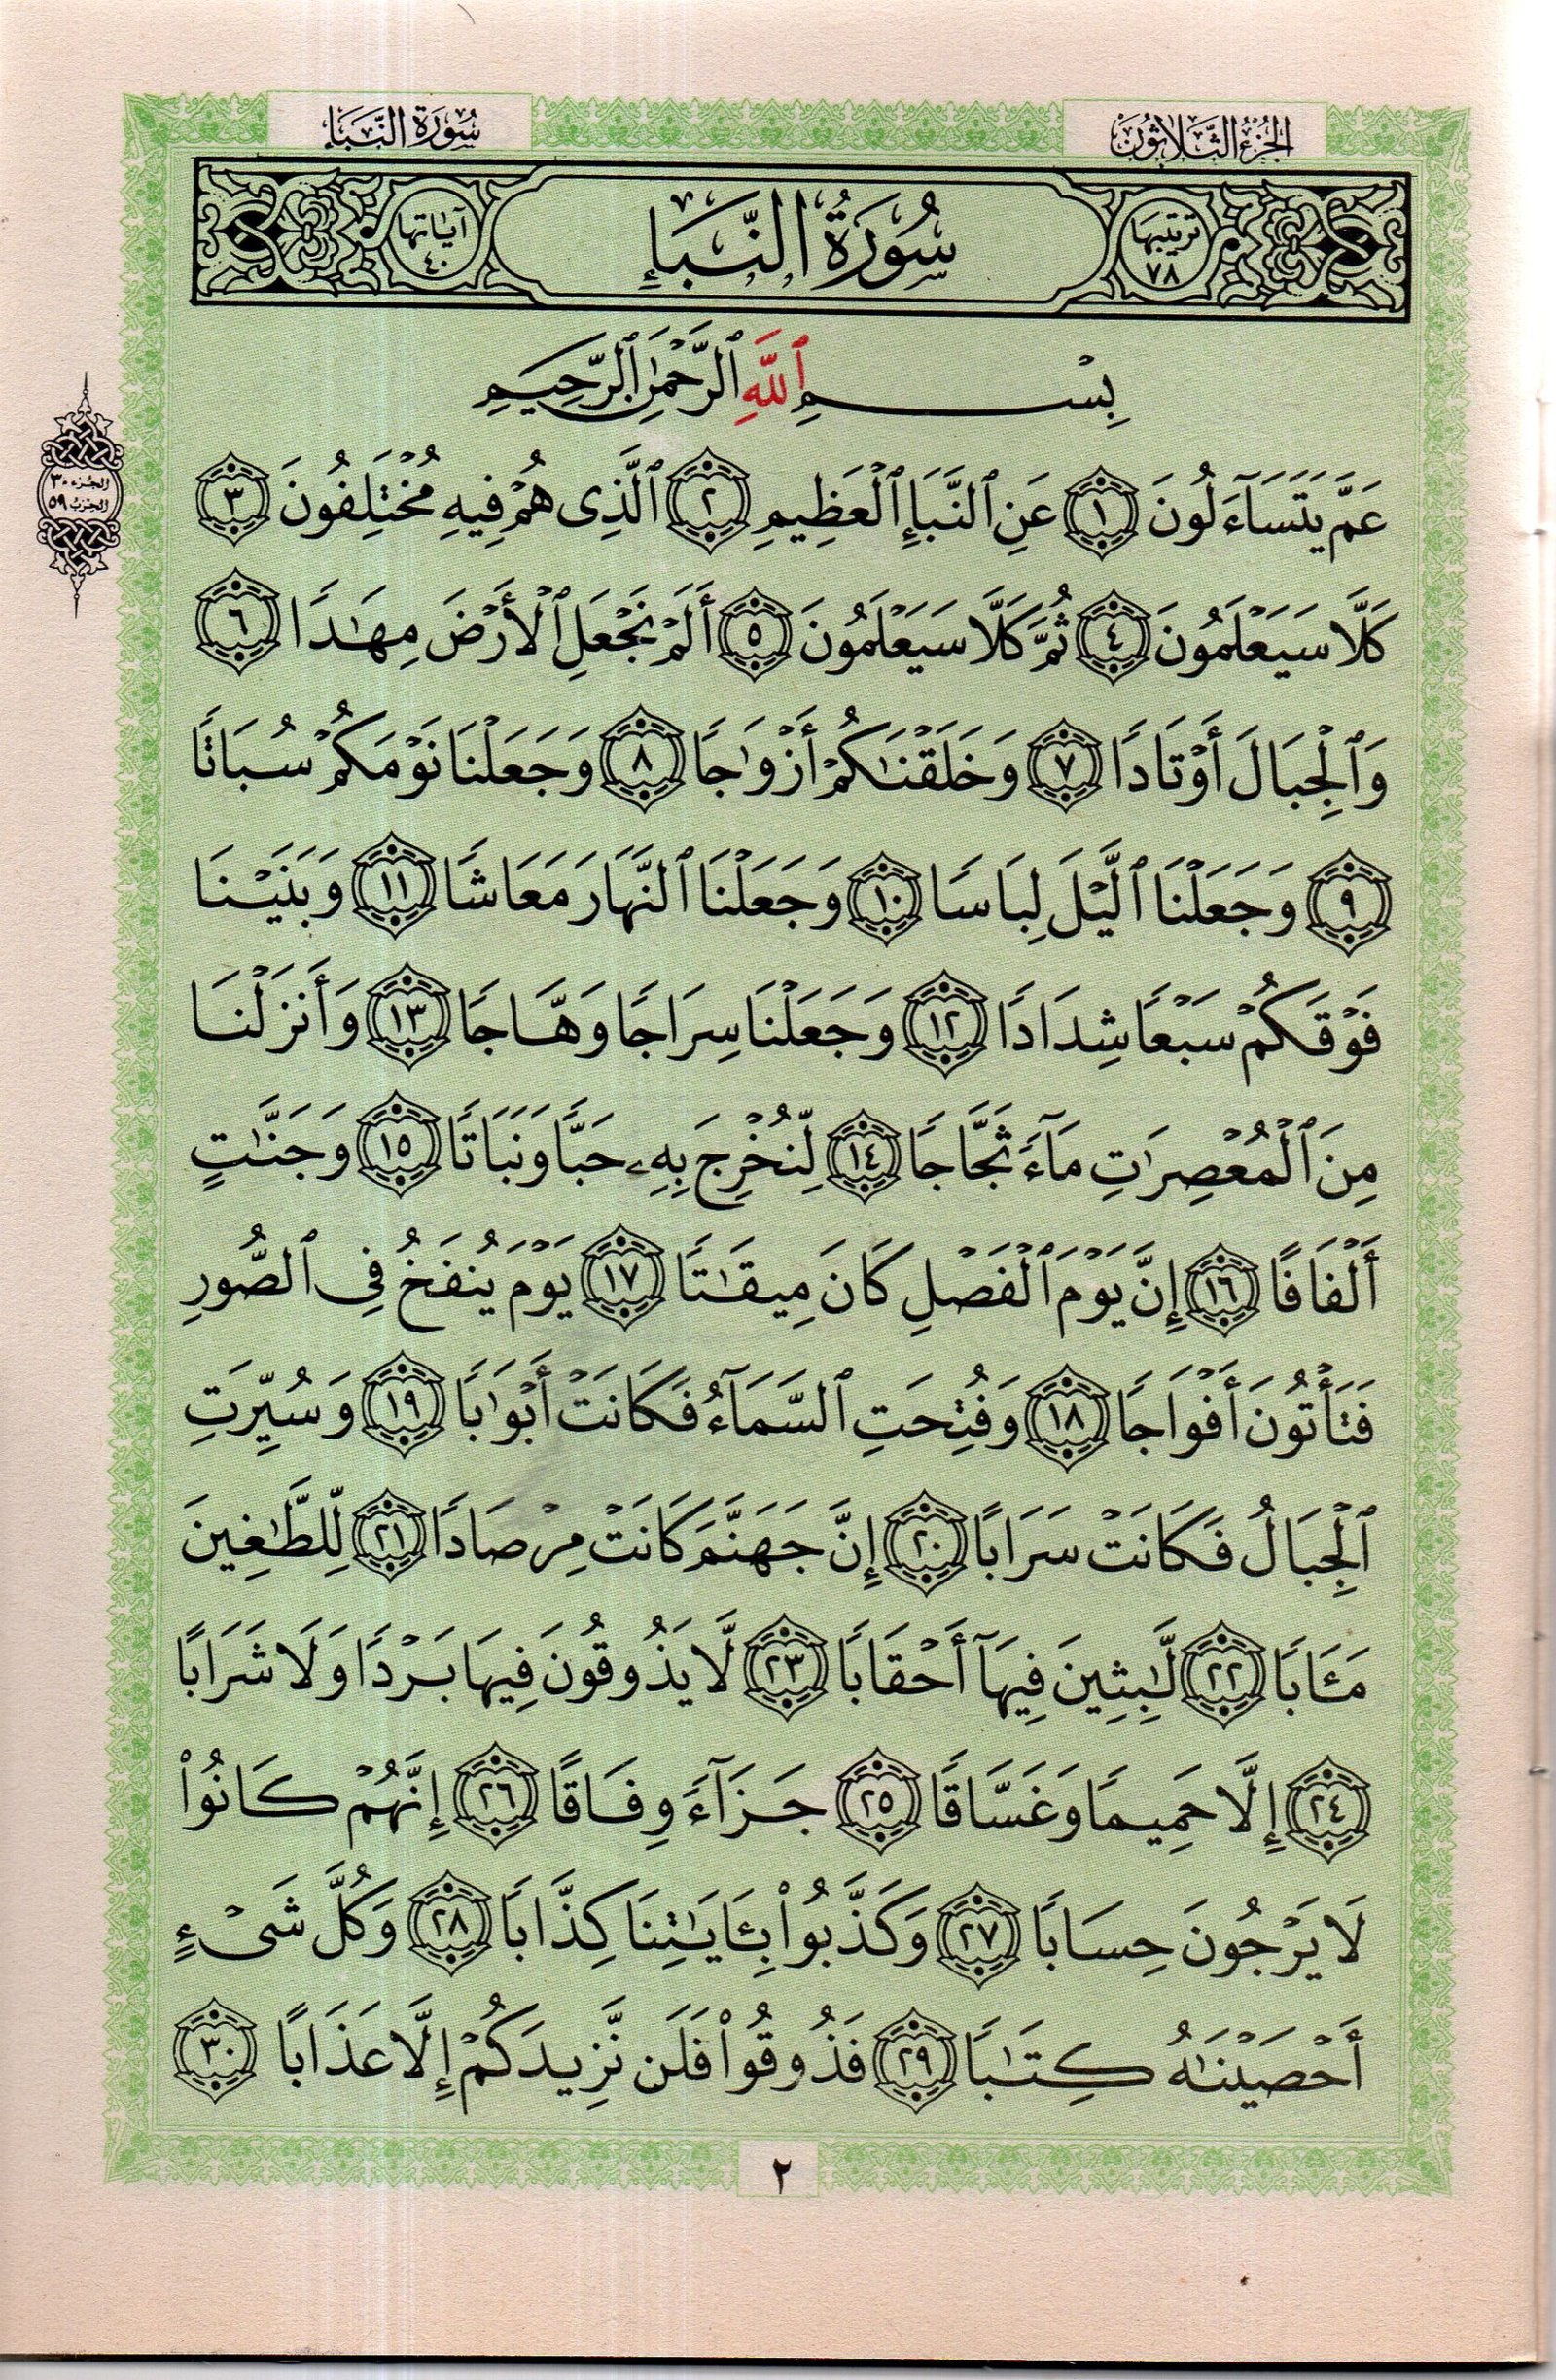 الجزء الثلاثون
سورة النبإ
ترتيبها ٧٨
سُورَةُ النَّبَإِ
آياتها ٤٠
بِسْمِ ٱللَّهِ ٱلرَّحْمَٰنِ ٱلرَّحِيمِ
الجزء ٣٠
الحزب ٥٩
عَمَّ يَتَسَآءَلُونَ ١ عَنِ ٱلنَّبَإِ ٱلْعَظِيمِ ٢ ٱلَّذِى هُمْ فِيهِ مُخْتَلِفُونَ ٣
كَلَّا سَيَعْلَمُونَ ٤ ثُمَّ كَلَّا سَيَعْلَمُونَ ٥ أَلَمْ نَجْعَلِ ٱلْأَرْضَ مِهَٰدًا ٦
وَٱلْجِبَالَ أَوْتَادًا ٧ وَخَلَقْنَٰكُمْ أَزْوَٰجًا ٨ وَجَعَلْنَا نَوْمَكُمْ سُبَاتًا
٩ وَجَعَلْنَا ٱلَّيْلَ لِبَاسًا ١٠ وَجَعَلْنَا ٱلنَّهَارَ مَعَاشًا ١١ وَبَنَيْنَا
فَوْقَكُمْ سَبْعًا شِدَادًا ١٢ وَجَعَلْنَا سِرَاجًا وَهَّاجًا ١٣ وَأَنزَلْنَا
مِنَ ٱلْمُعْصِرَٰتِ مَآءً ثَجَّاجًا ١٤ لِّنُخْرِجَ بِهِۦ حَبًّا وَنَبَاتًا ١٥ وَجَنَّٰتٍ
أَلْفَافًا ١٦ إِنَّ يَوْمَ ٱلْفَصْلِ كَانَ مِيقَٰتًا ١٧ يَوْمَ يُنفَخُ فِى ٱلصُّورِ
فَتَأْتُونَ أَفْوَاجًا ١٨ وَفُتِحَتِ ٱلسَّمَآءُ فَكَانَتْ أَبْوَٰبًا ١٩ وَسُيِّرَتِ
ٱلْجِبَالُ فَكَانَتْ سَرَابًا ٢٠ إِنَّ جَهَنَّمَ كَانَتْ مِرْصَادًا ٢١ لِّلطَّٰغِينَ
مَـَٔابًا ٢٢ لَّٰبِثِينَ فِيهَآ أَحْقَابًا ٢٣ لَّا يَذُوقُونَ فِيهَا بَرْدًا وَلَا شَرَابًا
٢٤ إِلَّا حَمِيمًا وَغَسَّاقًا ٢٥ جَزَآءً وِفَاقًا ٢٦ إِنَّهُمْ كَانُوا۟
لَا يَرْجُونَ حِسَابًا ٢٧ وَكَذَّبُوا۟ بِـَٔايَٰتِنَا كِذَّابًا ٢٨ وَكُلَّ شَىْءٍ
أَحْصَيْنَٰهُ كِتَٰبًا ٢٩ فَذُوقُوا۟ فَلَن نَّزِيدَكُمْ إِلَّا عَذَابًا ٣٠
٢